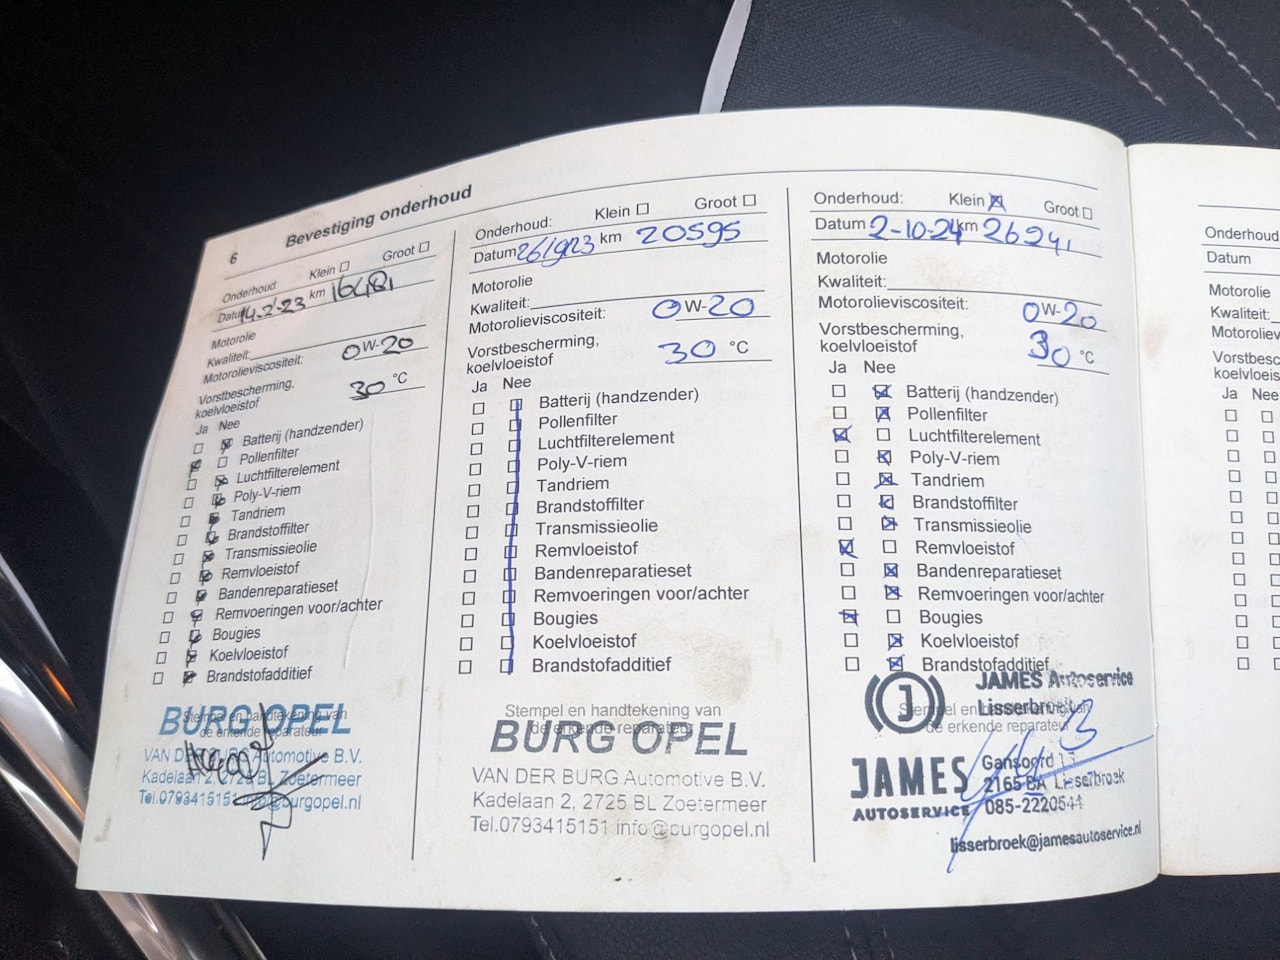 6 Bevestiging onderhoud
Onderhoud: Klein Groot
Datum 14-2-23 km 16481
Motorolie
Kwaliteit:
Motorolieviscositeit: 0W-20
Vorstbescherming,
koelvloeistof 30 °C
Ja Nee
Batterij (handzender)
Pollenfilter
Luchtfilterelement
Poly-V-riem
Tandriem
Brandstoffilter
Transmissieolie
Remvloeistof
Bandenreparatieset
Remvoeringen voor/achter
Bougies
Koelvloeistof
Brandstofadditief
Stempel en handtekening van
de erkende reparateur
BURG OPEL
VAN DER BURG Automotive B.V.
Kadelaan 2, 2725 BL Zoetermeer
Tel.0793415151 info@burgopel.nl
Onderhoud: Klein Groot
Datum 26/9/23 km 20595
Motorolie
Kwaliteit:
Motorolieviscositeit: 0W-20
Vorstbescherming,
koelvloeistof 30 °C
Ja Nee
Batterij (handzender)
Pollenfilter
Luchtfilterelement
Poly-V-riem
Tandriem
Brandstoffilter
Transmissieolie
Remvloeistof
Bandenreparatieset
Remvoeringen voor/achter
Bougies
Koelvloeistof
Brandstofadditief
Stempel en handtekening van
de erkende reparateur
BURG OPEL
VAN DER BURG Automotive B.V.
Kadelaan 2, 2725 BL Zoetermeer
Tel.0793415151 info@burgopel.nl
Onderhoud: Klein Groot
Datum 2-10-24 km 26241
Motorolie
Kwaliteit:
Motorolieviscositeit: 0W-20
Vorstbescherming,
koelvloeistof 30 °C
Ja Nee
Batterij (handzender)
Pollenfilter
Luchtfilterelement
Poly-V-riem
Tandriem
Brandstoffilter
Transmissieolie
Remvloeistof
Bandenreparatieset
Remvoeringen voor/achter
Bougies
Koelvloeistof
Brandstofadditief
Stempel en handtekening van
de erkende reparateur
JAMES Autoservice
Lisserbroek
JAMES
AUTOSERVICE
Gansoord
2165 BA Lisserbroek
085-2220544
lisserbroek@jamesautoservice.nl
Onderhoud
Datum
Motorolie
Kwaliteit:
Motoroliev
Vorstbesc
koelvloeis
Ja Nee